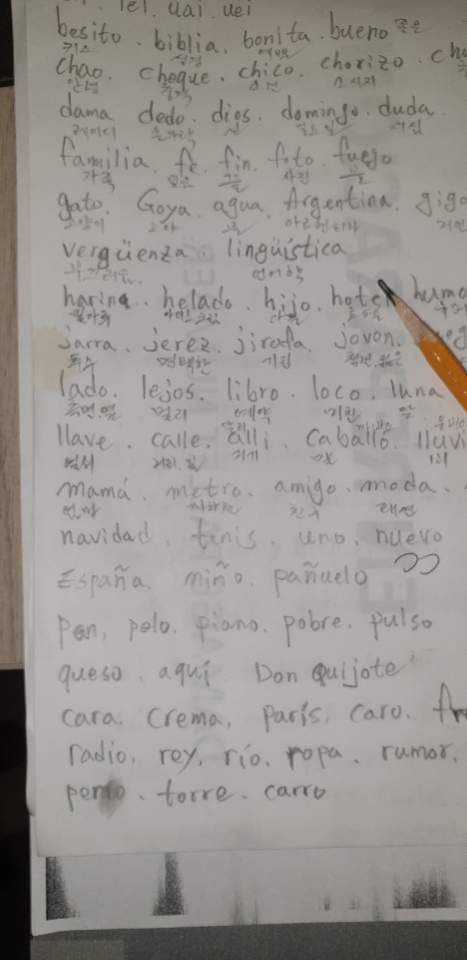 iei. uai. uei
besito. biblia. bonita. bueno 좋은
키스 성경 예쁜
chao. choque. chico. chorizo.
안녕 충격 소년 소시지
dama. dedo. dios. domingo. duda
레이디 손가락 신 일요일 의심
familia. fe. fin. foto. fuego
가족 믿음 사진 불
gato. Goya. agua. Argentina.
고양이 고야 물 아르헨티나
vergüenza. lingüistica
언어학
harina. helado. hijo. hotel
아이스크림 아들 호텔
jarra. jerez. jirafa. jovon.
기린
lado. lejos. libro. loco. luna
멀리 달
llave. calle. alli. caballo.
열쇠 거기 비
mamá. metro. amigo. moda.
엄마 지하철 친구
navidad. tenis. uno. nuevo
España. miño. pañuelo
pan, pelo. piano. pobre. pulso
queso. aquí Don Quijote
cara. Crema, parís, caro.
radio, rey, río. ropa. rumor,
torre. carro